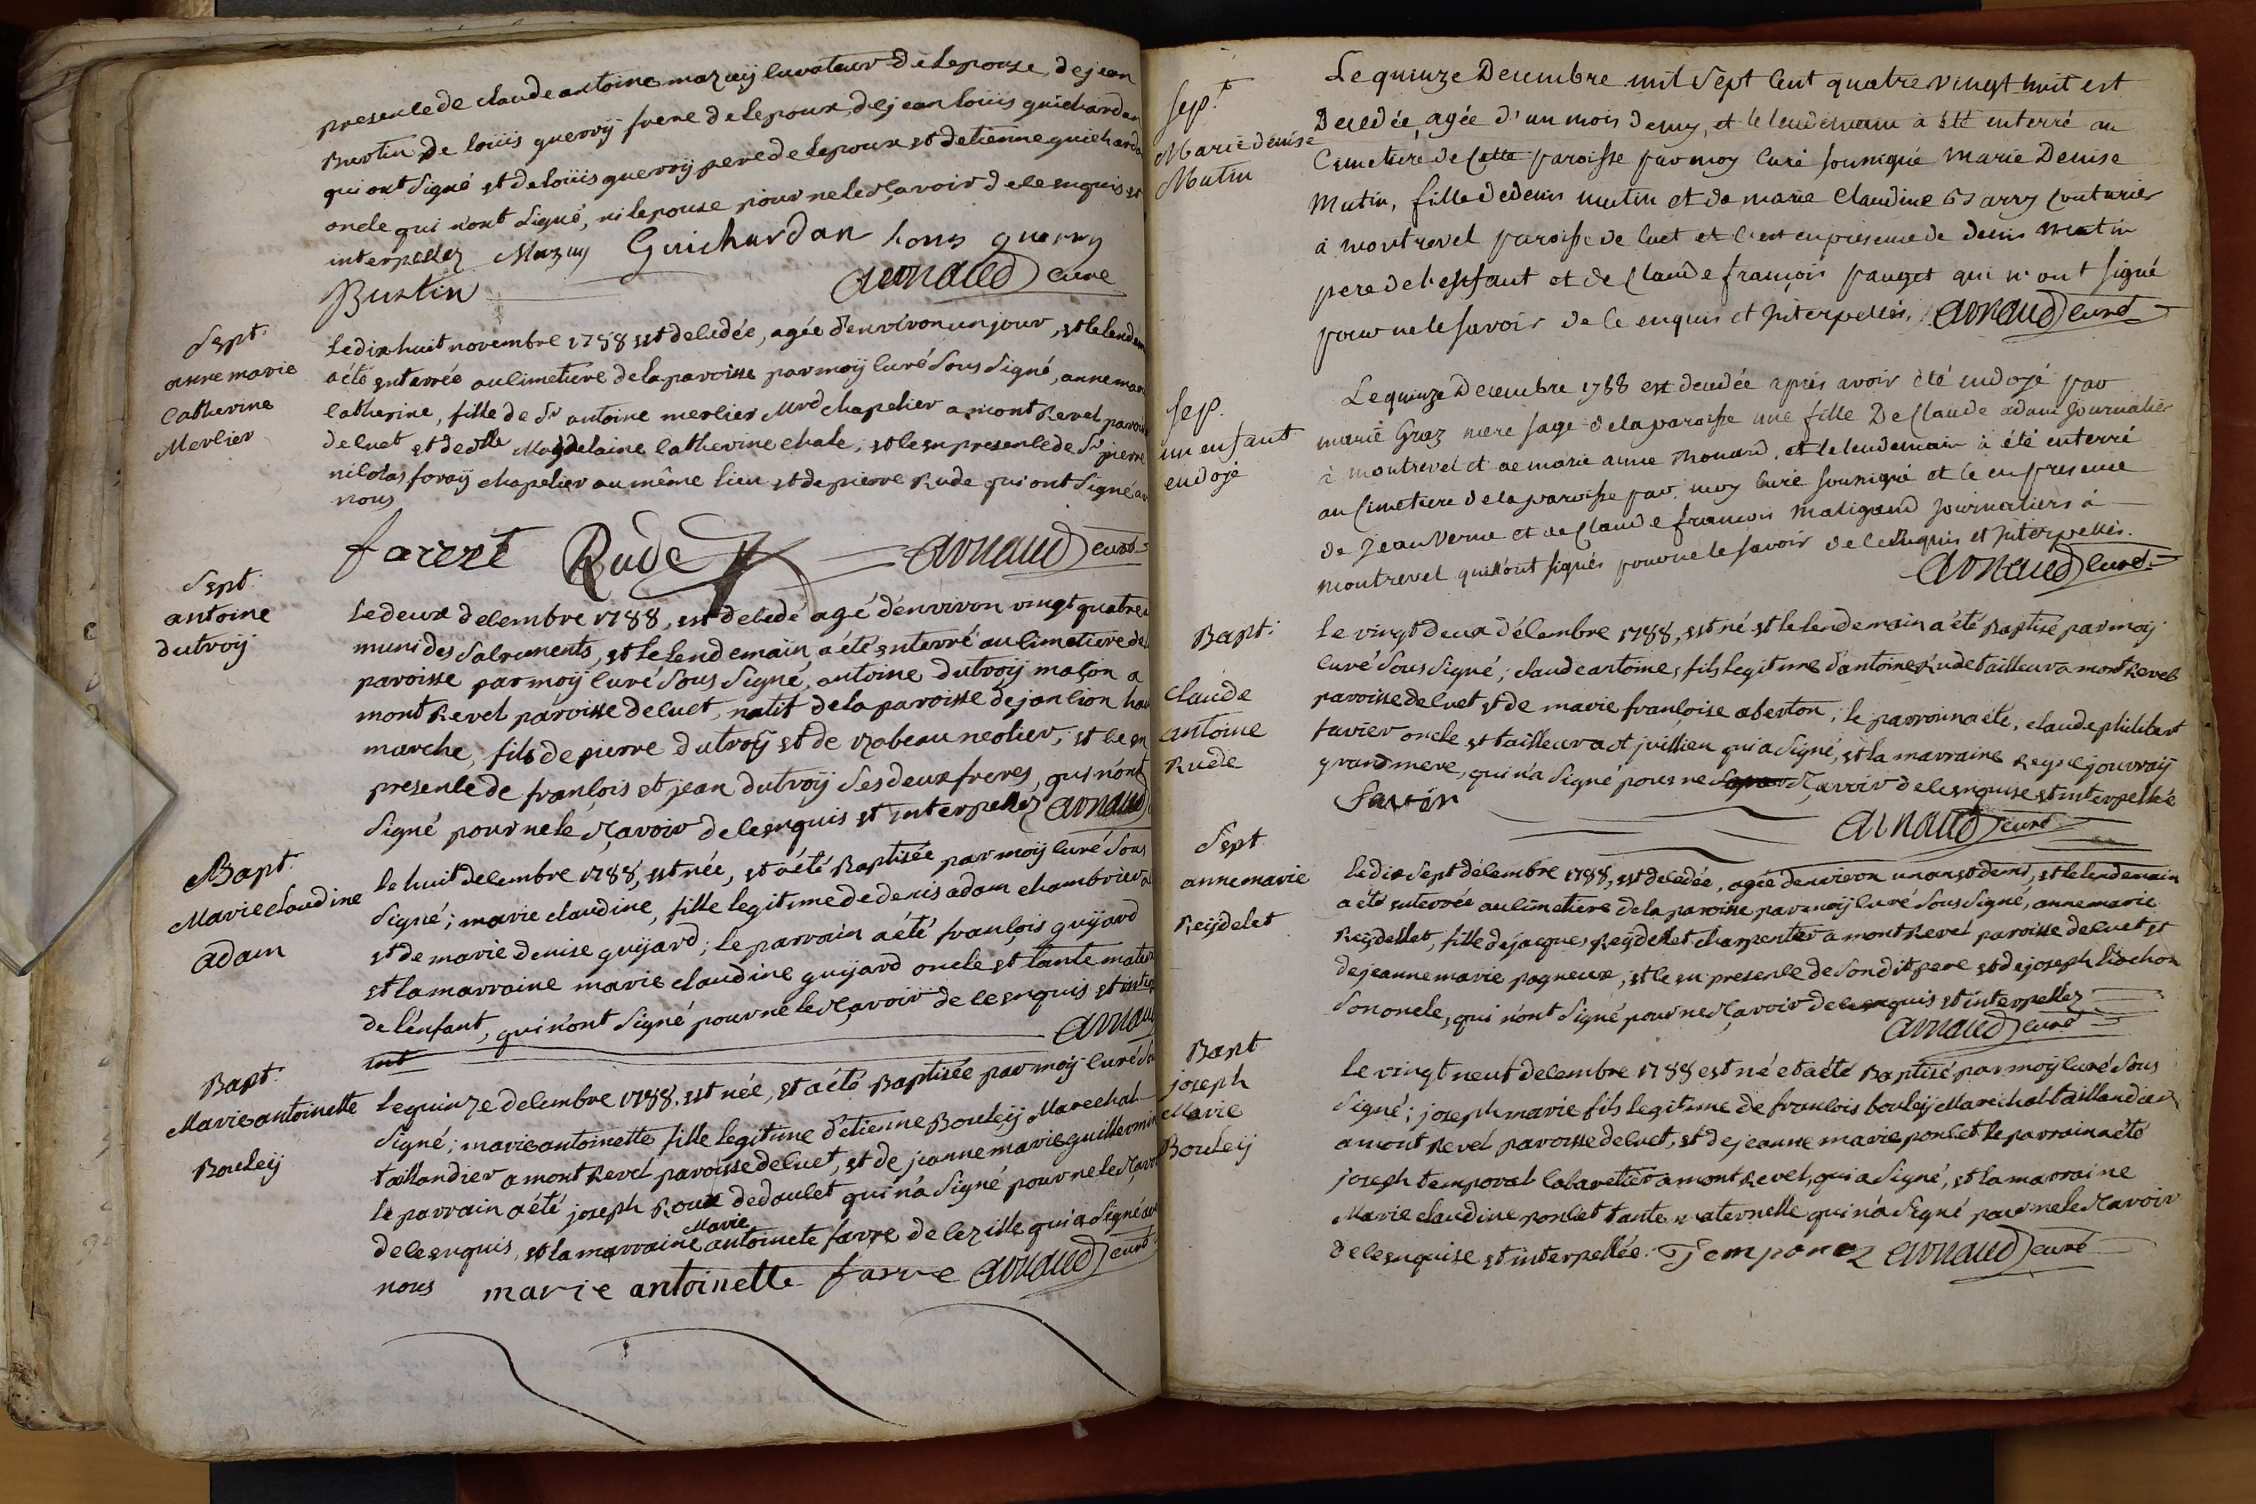 presence de claude antoine mazuÿ curateur de lepouse, de jean
Burtin de loüis guerrÿ frere de lepoux, de jean loüis guichardan
qui ont signé et de loüis guerrÿ pere de lepoux et detienne guichardan
oncle qui n'ont signé, ni lepouse pour ne le sçavoir de ce enquis et
interpellez Mazuy Guichardan Louis guerry
Burtin arnaud curé
Sept.
anne marie
Catherine
Merlier
Le dix huit novembre 1788 est decedée, agée d'environ un jour, et le lendem
a été enterrée au cimetiere de la paroisse par moÿ curé sous signé, anne marie
catherine, fille de Sr antoine merlier Mrd chapelier a montRevel paroisse
de cuet et de dlle Magdelaine Catherine chale, et ce en presence de Sr pierre
nicolas foraÿ chapelier au même lieu et de pierre Rude qui ont signé av
nous
Rude arnaud curé
Sept.
antoine
dutroÿ
Le deux decembre 1788, est decedé agé d'environ vingt quatre
muni des sacrements, et le lendemain a été enterré au cimetiere de
paroisse par moÿ curé sous signé, antoine dutroÿ maçon a
montRevel paroisse de cuet, natif de la paroisse de janlion hau
marche, fils de pierre dutroÿ et de izabeau neolier, et ce en
presence de françois et jean dutroÿ ses deux freres, qui n'ont
signé pour ne le sçavoir de ce enquis et interpellez arnaud
Bapt.
Marie claudine
adam
Le huit decembre 1788, est née, et a été Baptisée par moÿ curé sous
signé; marie claudine, fille legitime de denis adam chambrier a
et de marie denise guÿard; le parrain a été françois guÿard
et la marraine marie claudine guÿard oncle et tante mater
de l'enfant, qui n'ont signé pour ne le sçavoir de ce enquis et interp
arnau
Bapt.
Marie antoinette
Bouleÿ
Le quinze decembre 1788, est née, et a été Baptisée par moÿ curé so
signé; marie antoinette fille legitime d'etienne Bouleÿ Marechal
taillandier a montRevel paroisse de cuet, et de jeanne marie guillermin
le parrain a été joseph Roux dedaulet qui n'a signé pour ne le sçavo
de ce enquis, et la marraine Marie antoinete favre de lezille qui a signé av
nous marie antoinette favre arnaud curé
Sept.
Marie denise
Mutin
Le quinze Decembre mil sept cent quatre vingt huit est
Decedée, agée d'un mois demy, et le lendemain à été enterré au
Cimetiere de Cette paroisse par moy curé sousigné Marie Denise
Mutin, fille de denis mutin et de marie claudine Barry Couturier
à montrevel paroisse de Cuet et c'est en presence de denis Mutin
pere de l'enfant et de Claude françois pauget qui n'ont signé
pour ne le savoir de ce enquis et interpellés, arnaud curé
Sep.
un enfant
endojé
Le quinze Decembre 1788 est decedée après avoir été endojé par
marie Graz mere sage de la paroisse une fille De Claude adam journalier
à montrevel et de marie anne Monard, et le lendemain à été enterré
au Cimetiere de la paroisse par moy curé sousigné et ce en presence
de Jean Verne et de Claude françois Maligand journaliers à
montrevel qui n'ont signés pour ne le savoir de ce enquis et Interpellés.
arnaud curé
Bapt.
Claude
antoine
Rude
Le vingt deux décembre 1788, est né et le lendemain a été Baptisé par moÿ
curé sous signé; claude antoine, fils legitime d'antoine Rude tailleur a montRevel
paroisse de cuet et de marie françoise aberton; le parrain a été, claude philibert
favier oncle et tailleur a st jullien qui a signé, et la marraine Reyne jouvraÿ
grand mere, qui n'a signé pour ne sçavoir de ce enquise et interpellée
arnaud curé
Sept.
anne marie
Reÿdelet
Le dix Sept décembre 1788, est decedée, agée denviron un an et demi, et le lendemain
a été enterrée au cimetiere de la paroisse par moÿ curé sous signé, anne marie
Reÿdellet, fille de jacques Reÿdellet charpentier a montRevel paroisse de cuet et
de jeanne marie pagneux, et ce en presence de son dit pere et de joseph liochon
son oncle, qui n'ont signé pour ne sçavoir de ce enquis et interpellez
arnaud curé
Bapt
joseph
Marie
Bouleÿ
Le vingt neuf decembre 1788 est né et a été Baptisé par moÿ curé sous
signé; joseph marie fils legitime de francois bouleÿ Marechal taillandier
a montRevel paroisse de cuet, et de jeanne marie poncet le parrain a été
joseph temporal cabaretier a montRevel, qui a signé, et la marraine
Marie claudine poncet tante maternelle qui n'a signé pour ne le sçavoir
de ce enquise et interpellée. arnaud curé